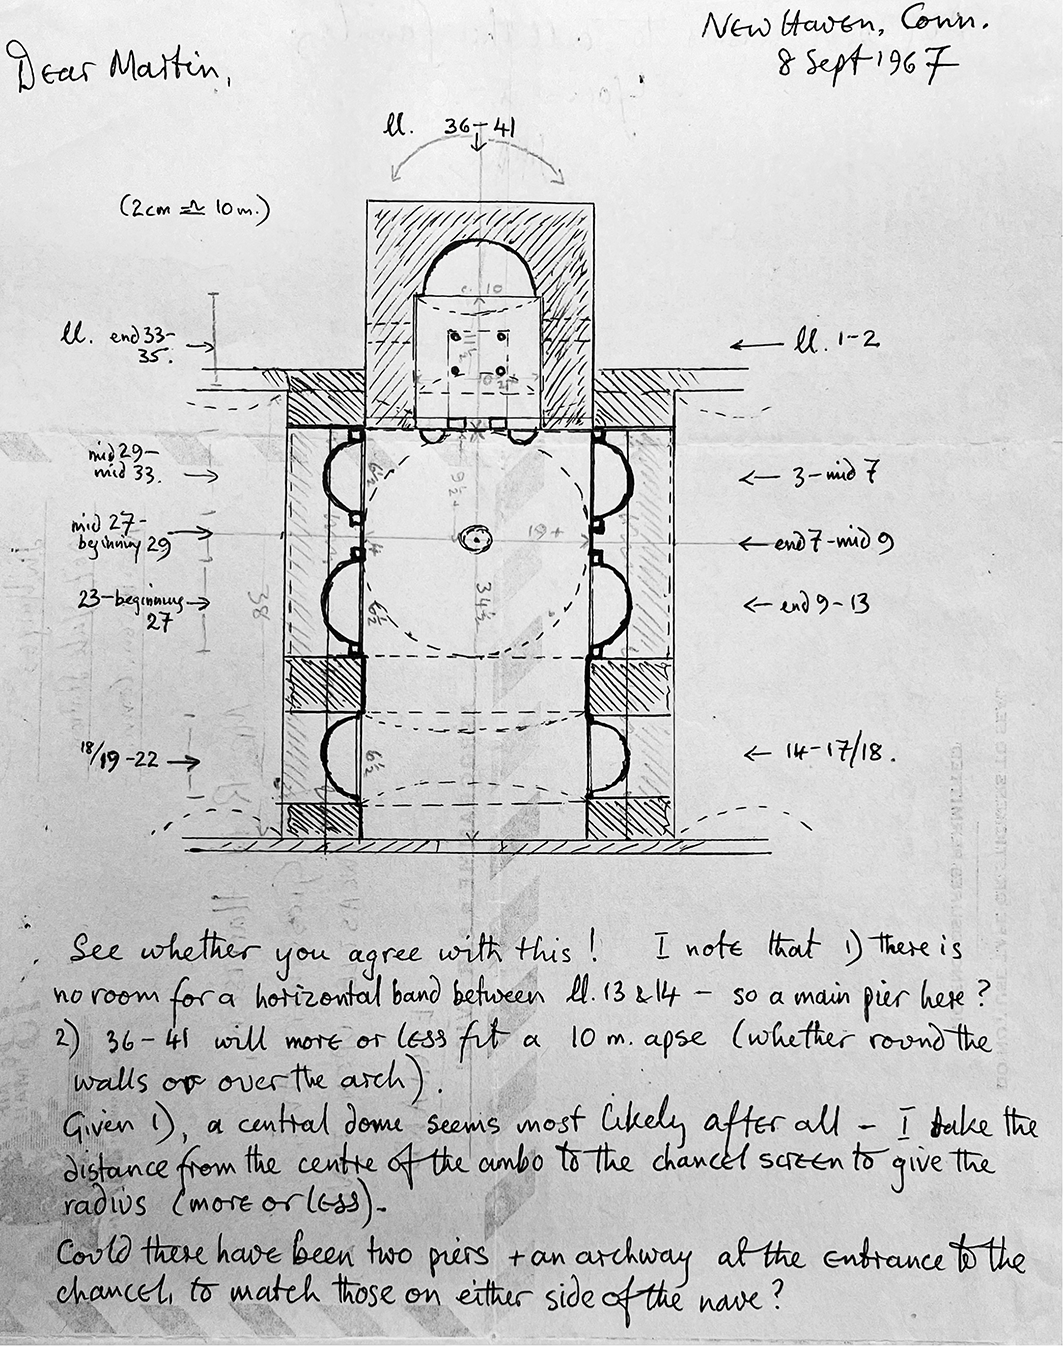 New Haven, Conn.
8 Sept 1967
Dear Martin,
ll. 36–41
(2cm ≏ 10 m.)
ll. end 33–
35.
ll. 1–2
c. 10
mid 29–
mid 33.
3–mid 7
6½
9½+
mid 27–
beginning 29
end 7–mid 9
19+
4
23–beginning
27
end 9–13
38
6½
34½
18/19–22
14–17/18.
6½
See whether you agree with this! I note that 1) there is
no room for a horizontal band between ll. 13 & 14 – so a main pier here?
2) 36–41 will more or less fit a 10 m. apse (whether round the
walls or over the arch).
Given 1), a central dome seems most likely after all – I take the
distance from the centre of the ambo to the chancel screen to give the
radius (more or less).
Could there have been two piers + an archway at the entrance to the
chancel, to match those on either side of the nave?